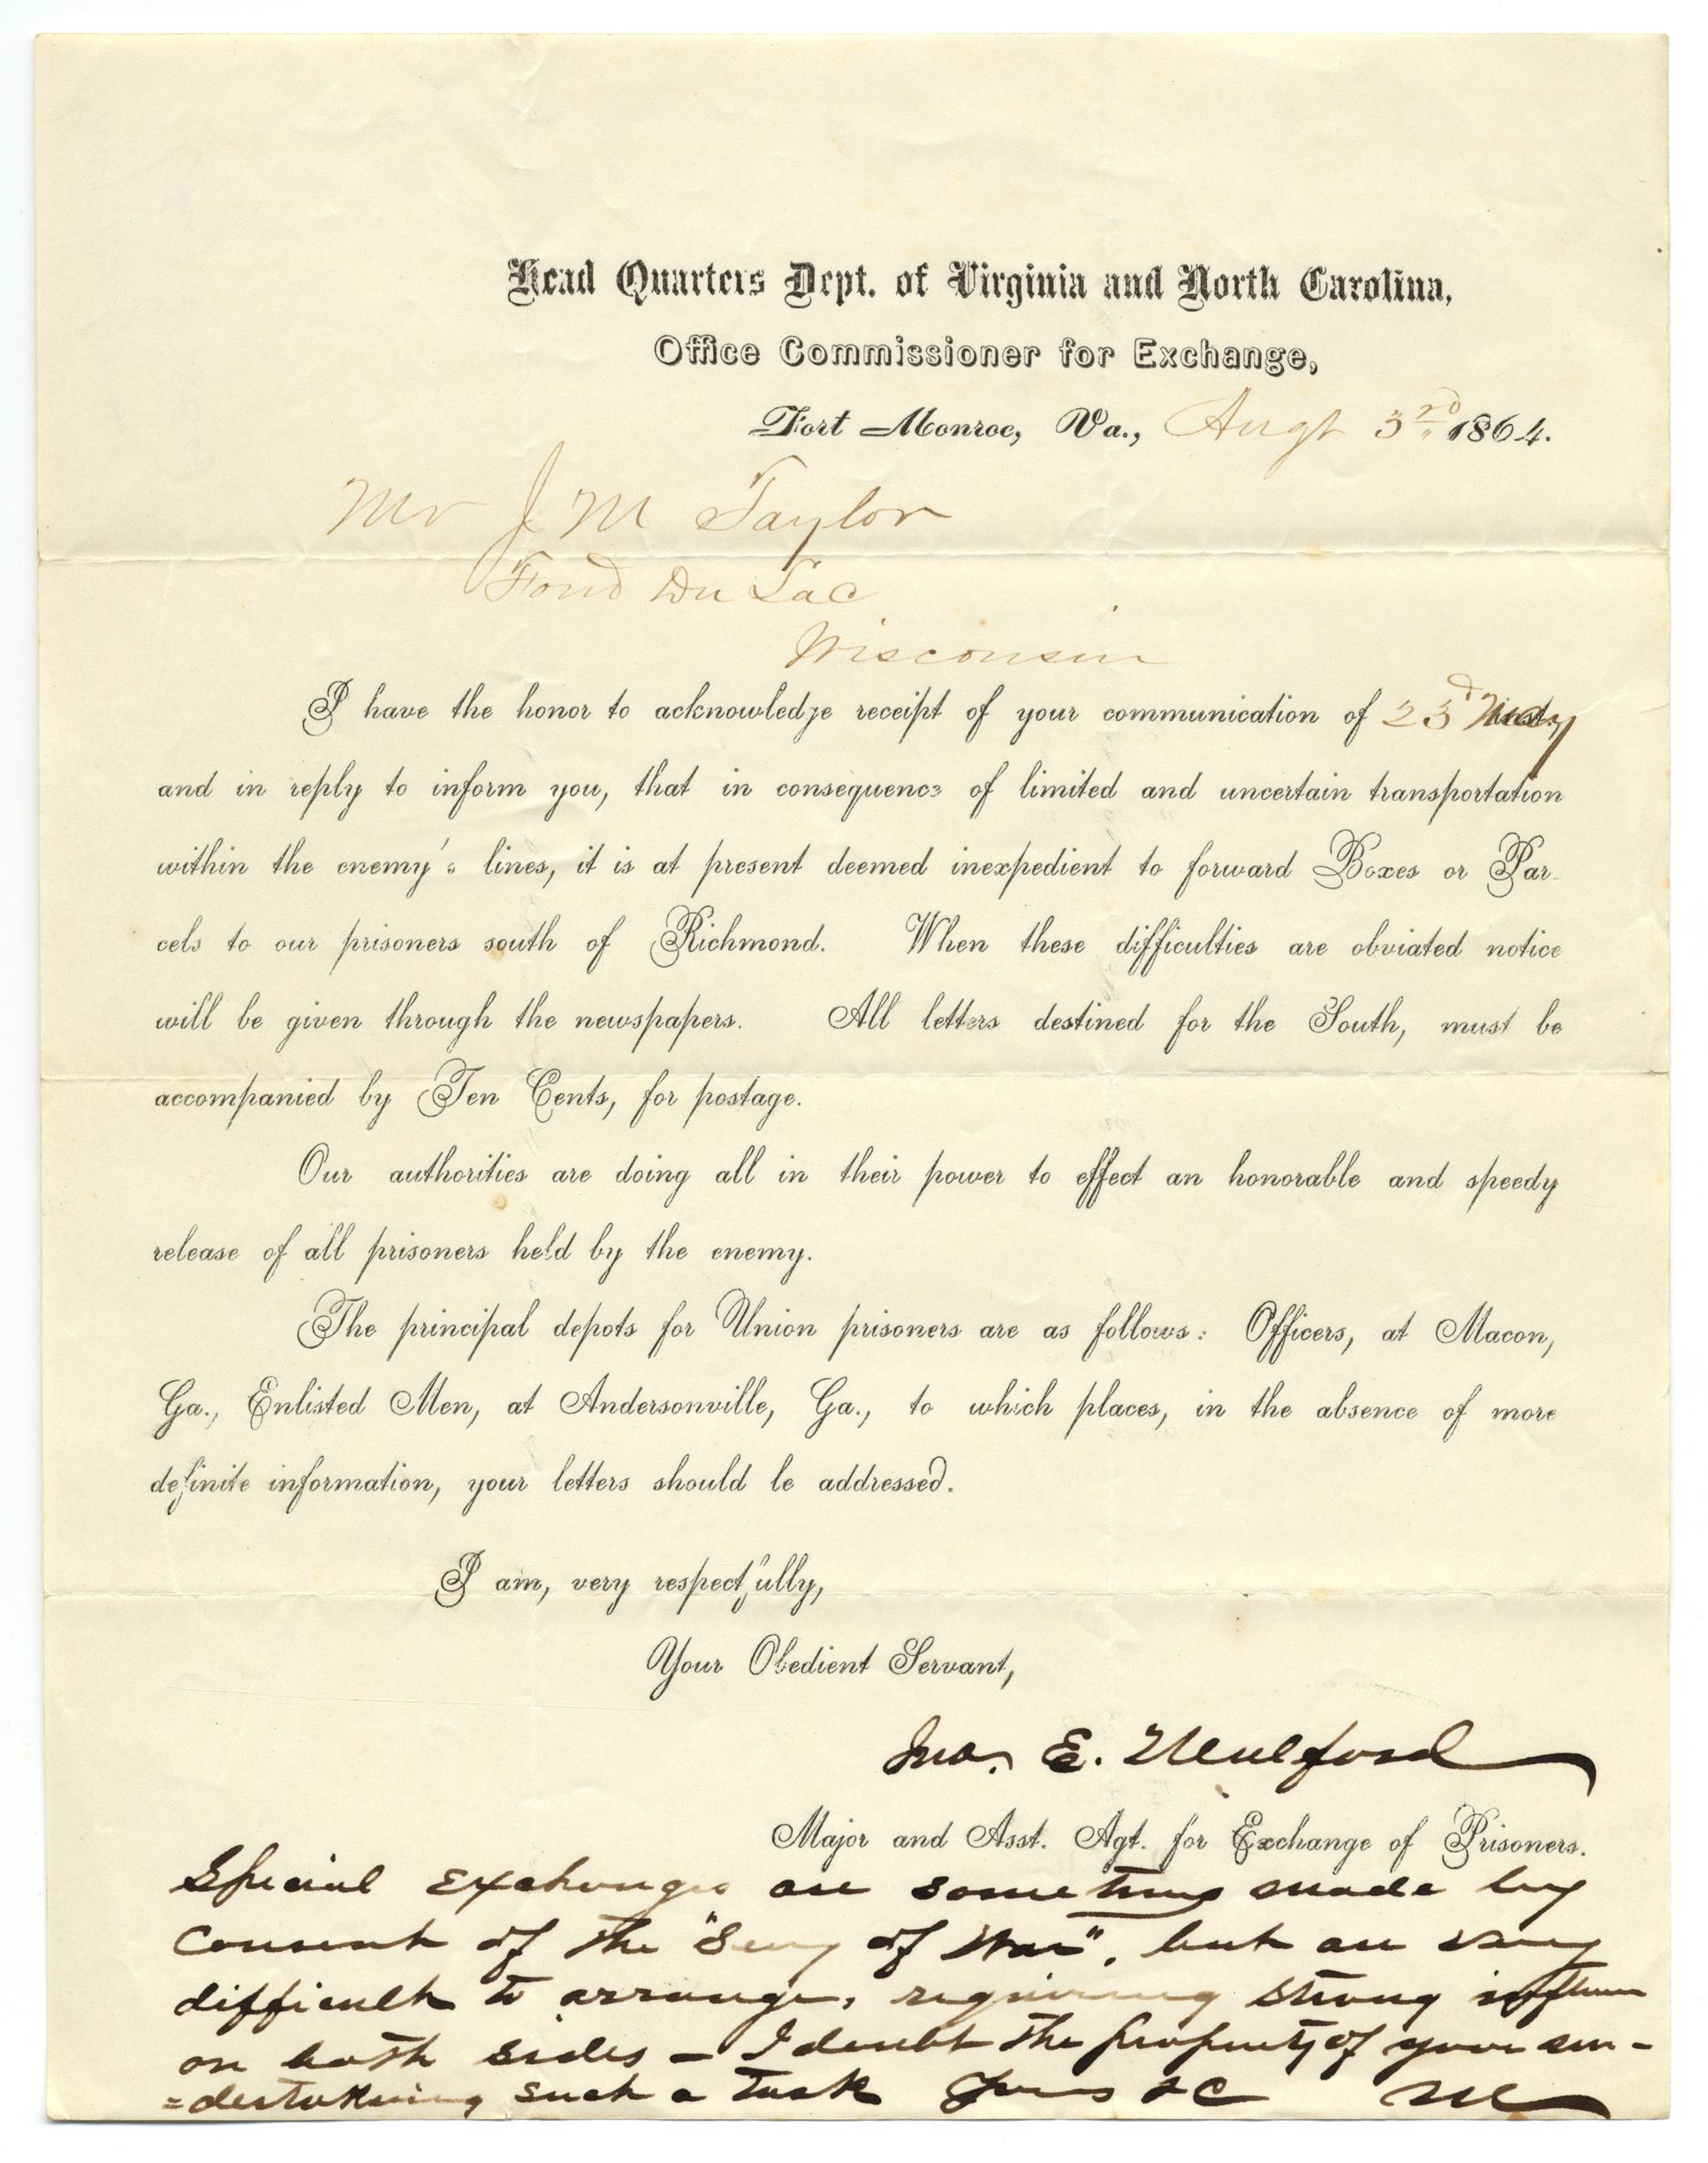 Head Quarters Dept. of Virginia and North Carolina,
Office Commissioner for Exchange,
Fort Monroe, Va., Augt 3rd 1864.
Mr J M Taylor
Fond Du Lac
Wisconsin
I have the honor to acknowledge receipt of your communication of 23d May
and in reply to inform you, that in consequence of limited and uncertain transportation
within the enemy's lines, it is at present deemed inexpedient to forward Boxes or Par-
cels to our prisoners south of Richmond. When these difficulties are obviated notice
will be given through the newspapers. All letters destined for the South, must be
accompanied by Ten Cents, for postage.
Our authorities are doing all in their power to effect an honorable and speedy
release of all prisoners held by the enemy.
The principal depots for Union prisoners are as follows: Officers, at Macon,
Ga., Enlisted Men, at Andersonville, Ga., to which places, in the absence of more
definite information, your letters should be addressed.
I am, very respectfully,
Your Obedient Servant,
Jno. E. Mulford
Major and Asst. Agt. for Exchange of Prisoners.
Special Exchanges are sometimes made by
consent of the "Secy of War", but are very
difficult to arrange, requiring strong influence
on both sides - I doubt the propriety of your un-
=dertaking such a task Yours &C M